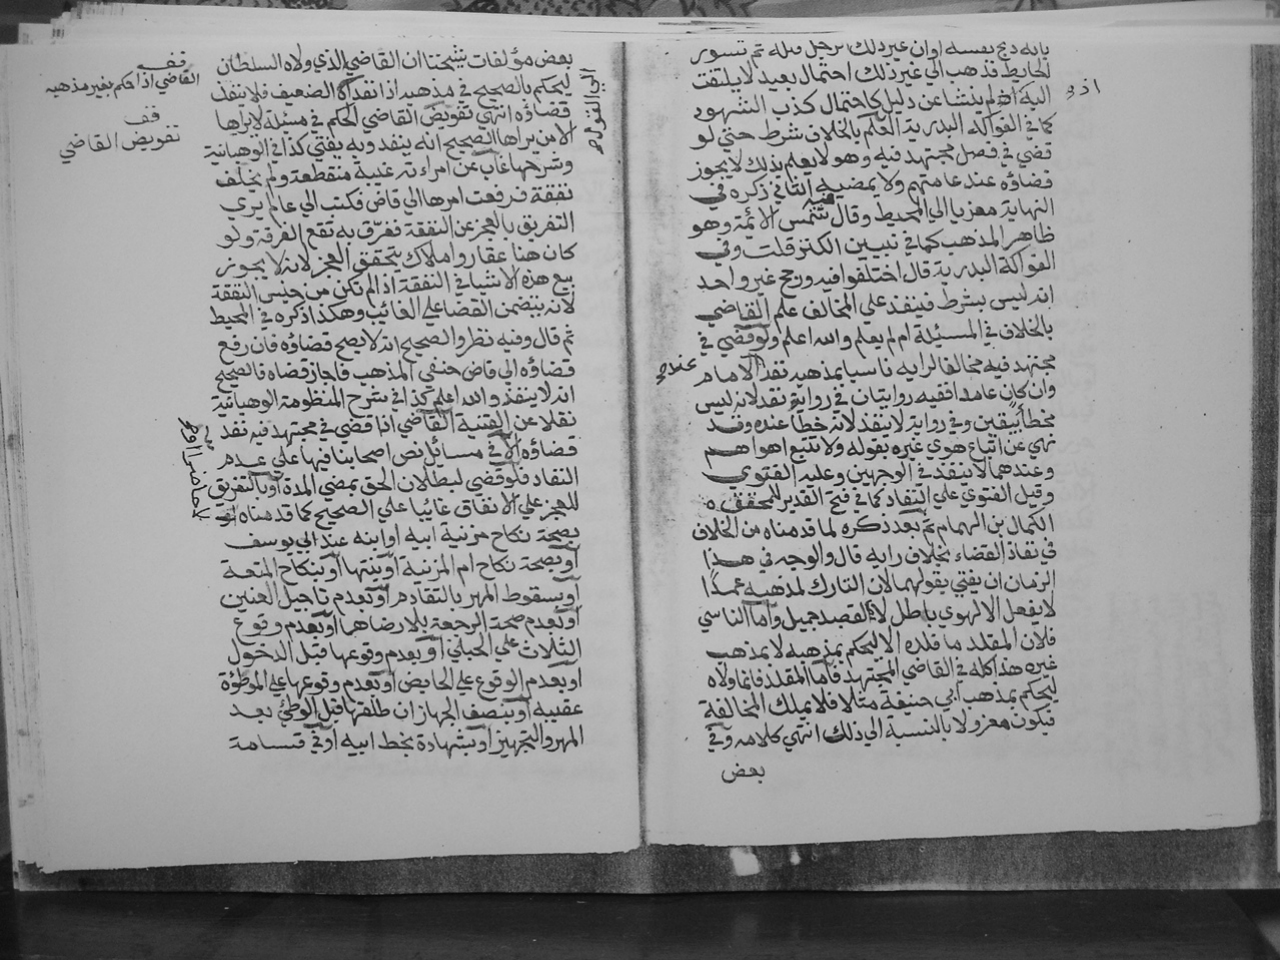 بابه ذبح نفسه او ان غير ذلك برجل قبله ثم تسور
الحايط فذهب الي غير ذلك احتمال بعيد لا يلتفت
اليه اذ لم ينشا عن دليل كاحتمال كذب الشهود
كما في الفواكه البدرية العلم بالخلاف شرط حتي لو
قضي في فصل مجتهد فيه وهو لا يعلم بذلك لا يجوز
قضاؤه عند عامتهم ولا يمضيه الثاني ذكره في
النهاية معزيا الي المحيط وقال شمس الائمة وهو
ظاهر المذهب كما في تبيين الكنز قلت وفي
الفواكة البدرية قال اختلفوا فيه ورجح غير واحد
انه ليس بشرط فينفذ علي المخالف علم القاضي
بالخلاف في المسيئلة ام لم يعلم والله اعلم ولو قضي في
مجتهد فيه مخالفا لرايه ناسيا بمذهبه نفذ الامام
وان كان عامدا ففيه روايتان في رواية نفذ لانه ليس
بخطا بيقين وفي رواية لا ينفذ لانه خطا عنده وقد
نهي عن اتباع هوي غيره بقوله ولا تتبع اهواهم
وعندهما لا ينفذ في الوجهين وعليه الفتوي
وقيل الفتوي علي النفاد كما في فتح القدير للمحقق
الكمال بن الهمام ثم بعد ذكره لما قدمناه من الخلاف
في نفاذ القضاء بخلاف رايه قال والوجه في هذا
الزمان ان يفتي بقولهما لان التارك لمذهبه عمدا
لا يفعل الا لهوي باطل لا لقصد جميل واما الناسي
فلان المقلد ما قلده الا ليحكم بمذهبه لا بمذهب
غيره هذا كله في القاضي المجتهد فاما المقلد فانما ولاه
ليحكم بمذهب ابي حنيفة مثلا فلا يملك المخالفة
فيكون معزولا بالنسبة الي ذلك انتهي كلامه وفي
بعض
عند
بعض مؤلفات شيختنا ان القاضي الذي ولاه السلطان
ليحكم بالصحيح في مذهبه اذا نفد الضعيف فلا ينفذ
قضاؤه انتهي تفويض القاضي الحكم في مسئلة لا يراها
الا من يراها الصحيح انه ينفد وبه يفتي كذا في الوهبانية
وشرحها غاب عن امراته غيبة منقطعة ولم يخلف
نفقة فرفعت امرها الي قاض فكتب الي عالم يري
التفريق بالعجز عن النفقة ففرق به تقع الفرقة ولو
كان هنا عقار واملاك يتحقق العجز لانه لا يجوز
بيع هذه الاشيا في النفقة اذا لم تكن من جنس النفقة
لانه يتضمن القضا علي الغائب وهكذا ذكره في المحيط
ثم قال وفيه نظر والصحيح انه لا يصح قضاؤه فان رفع
قضاؤه الي قاض حنفي المذهب فاجاز قضاه فالصحيح
انه لا ينفذ والله اعلم كذا في شرح المنظومة الوهبانية
نقلا عن القنية القاضي اذا قضي في مجتهد فيه نفد
قضاؤه الا في مسائل نص اصحابنا فيها علي عدم
النفاد فلو قضي لبطلان الحق بمضي المدة او بالتفريق
للعجز علي الانفاق غائبا علي الصحيح كما قدمناه
بصحة نكاح مزنية ابيه او ابنه عند ابي يوسف
او بصحة نكاح ام المزنية او بنتها او بنكاح المتعة
او بسقوط المهر بالتقادم او بعدم تاجيل العنين
او بعدم صحة الرجعة بلا رضاها او بعدم وقوع
الثلاث علي الحبلي او بعدم وقوعها قبل الدخول
او بعدم الوقوع علي الحايض او بعدم وقوعها علي الموطؤة
عقيبه او بنصف الجهاز ان طلقها قبل الوطئ بعد
المهر والتجهيز او بشهادة بخط ابيه او في قسامة
قف
القاضي اذا حكم بغير مذهبه
قف
تفويض القاضي